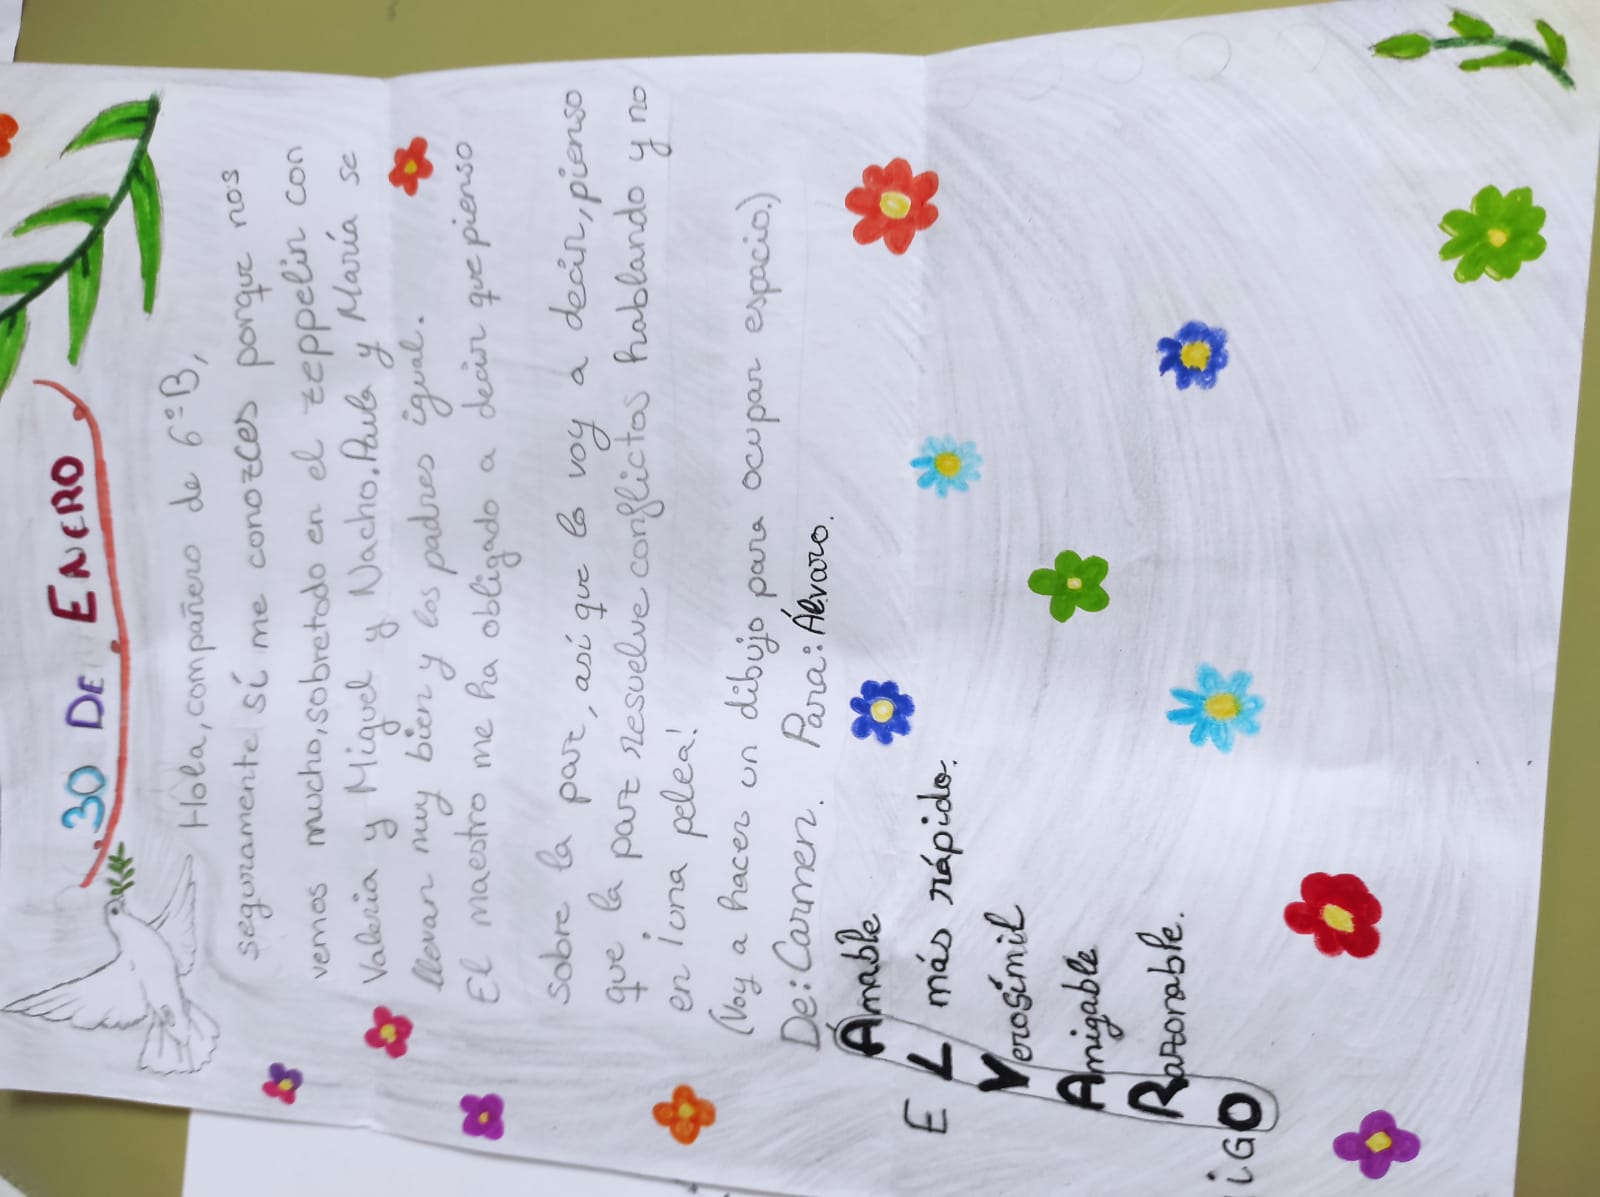 30 DE ENERO
Hola, compañero de 6ºB,
seguramente sí me conozces porque nos
vemos mucho, sobretodo en el zeppelin con
Valeria y Miguel y Nacho. Paula y María se
llevan muy bien y los padres igual.
El maestro me ha obligado a decir que pienso
sobre la paz, así que lo voy a decir, pienso
que la paz resuelve conflictos hablando y no
en una pelea!
(Voy a hacer un dibujo para ocupar espacio.)
De: Carmen. Para: Álvaro.
Ámable
EL más rápido.
Verosímil
Amigable
Razonable.
iGO